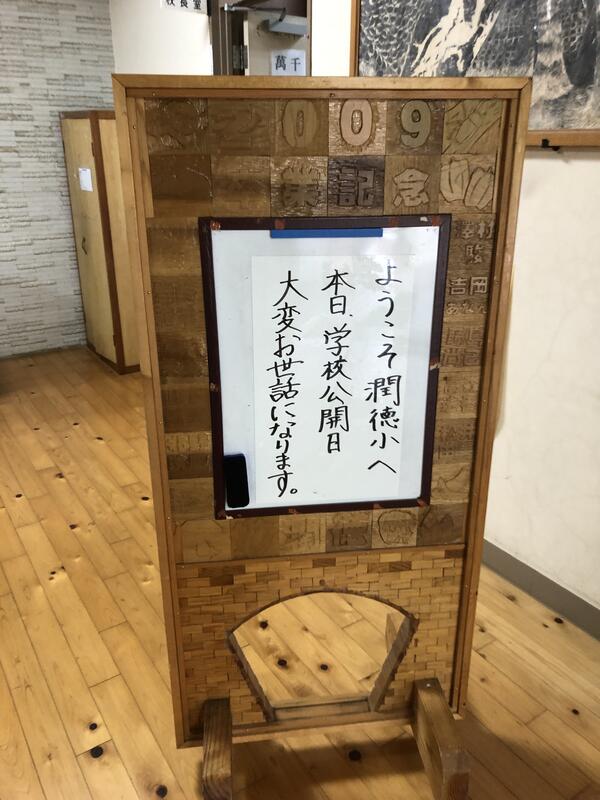 校長室
萬千
009
業記念
ようこそ潤徳小へ
本日、学校公開日
大変お世話になります。
吉岡